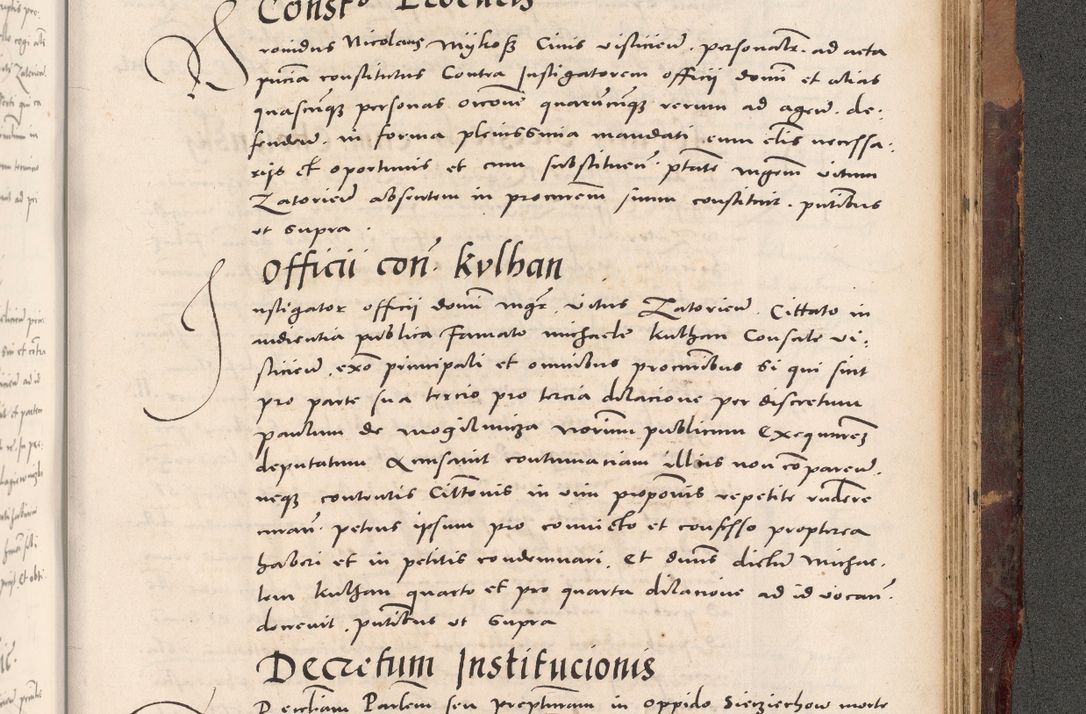 Consti
rovidus Nicolaus Mijkosz Civis visliciens. personaliter ad acta
pncia constitutus Contra Instigatorem officii domini et alias
quascunqz personas occone quarumcunqz rerum ad agend. de-
fendend. in forma plenissima mandati cum clis necessa-
rijs et oportunis et cum substituen. ptate mgrm vitum
Zatoriens absentem in procurem suum constituit. pntibus
ut supra.
Officii con. kvlhan
nstigator officii domini mgr. vitus Zatoriens. Cittato in
audientia publica Famato michaele kulhan Consule vi-
sliciens. exo principali et omnibus procuribus si qui sint
pro parte sua tercio pro tercia dilacione per discretum
paulum de mogilnicza notarium publicum Exequutorem
deputatum accusavit contumaciam illius non comparen.
neqz contentis Cittonis in vim proponis repetite respondere
curan. petens ipsum pro convicto et confesso propterea
haberi et in petitis condemnari. Et dnus dictum Michae-
lem kulhan quarto et pro quarta dilacione ad id vocan.
decrevit. pntibus ut supra
Decretum Institucionis
parlem seu in oppido Sieziechow morte